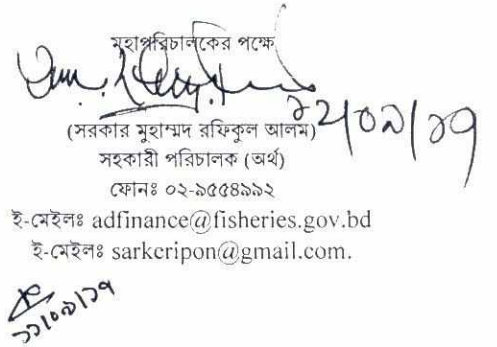 মহাপরিচালকের পক্ষে
১২/০৯/১৭
(সরকার মুহাম্মদ রফিকুল আলম)
সহকারী পরিচালক (অর্থ)
ফোনঃ ০২-৯৫৫৪৯৯২
ই-মেইলঃ adfinance@fisheries.gov.bd
ই-মেইলঃ sarkeripon@gmail.com.
১২/০৯/১৭